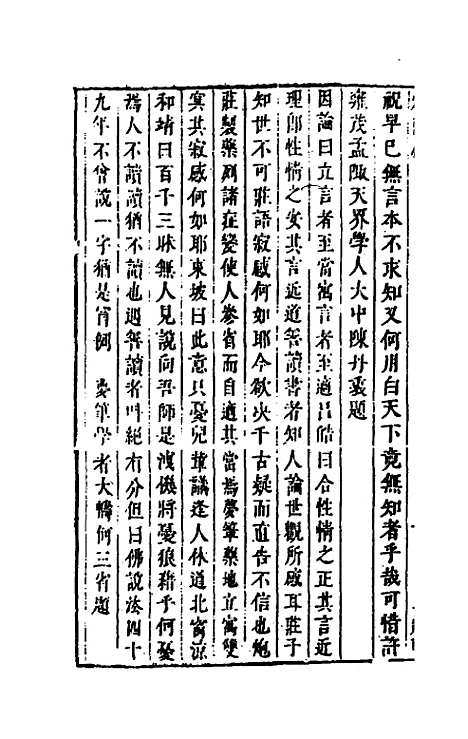 祝早巳無言本不求知又何用白天下竟無知者乎哉可惜許
雍茂孟陬天界學人大中陳丹衷題
因論曰立言者至當寓言者至適呂皓曰合性情之正其言近
理郎性情之安其言近道善讀書者知人論世觀所感耳莊子
知世不可莊語寂感何如耶今欲決千古疑而直告不信也炮
莊製藥列諸症變使人參省而自適其當焉夢筆藥地立寓雙
冥其寂感何如耶東坡曰此意只憂兒輩議逢人休道北窗涼
和靖曰百千三昧無人見說向吾師是洩機將憂狼藉乎何憂
焉人不讀讀猶不讀也遇善讀者叫絕有分但曰佛說法四十
九年不曾說一字猶是胥 夢筆學者大 何三省題